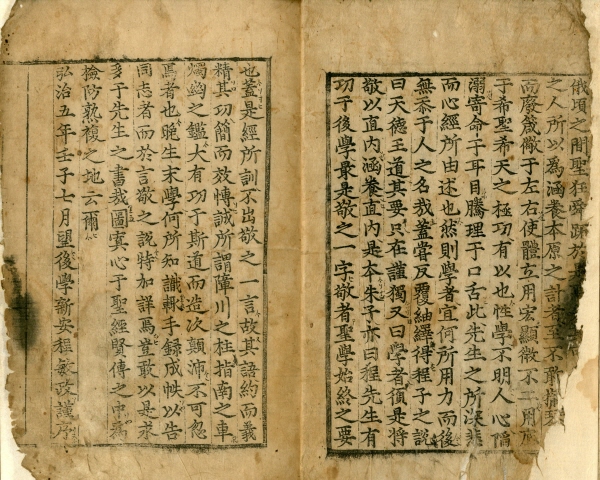 俄頃之間聖狂舜跖於
之人所以為涵養本原之計者至不敢
而嚴箴儆于左右使體立用宏顯微不二用底
于希聖希天之極功有以也性學不明人心陷
溺寄命于耳目騰理于口舌此先生之所深悲
而心經所由述也然則學者宜何所用力而後
無忝于人之名哉蓋嘗反覆紬繹得程子之說
曰天德王道其要只在謹獨又曰學者須是將
敬以直內涵養直內是本朱子亦曰程先生有
功于後學最是敬之一字敬者聖學始終之要
也蓋是經所訓不出敬之一言故其語約而義
精其功簡而效博誠所謂障川之柱指南之車
燭幽之鑑大有功于斯道而造次顛沛不可忽
焉者也晚生末學何所知識輒手錄成帙以告
同志者而於言敬之說特加詳焉豈敢以是求
多于先生之書哉圖寘心于聖經賢傳之中為
檢防熟複之地云爾
弘治五年壬子七月望後學新安程敏政謹序